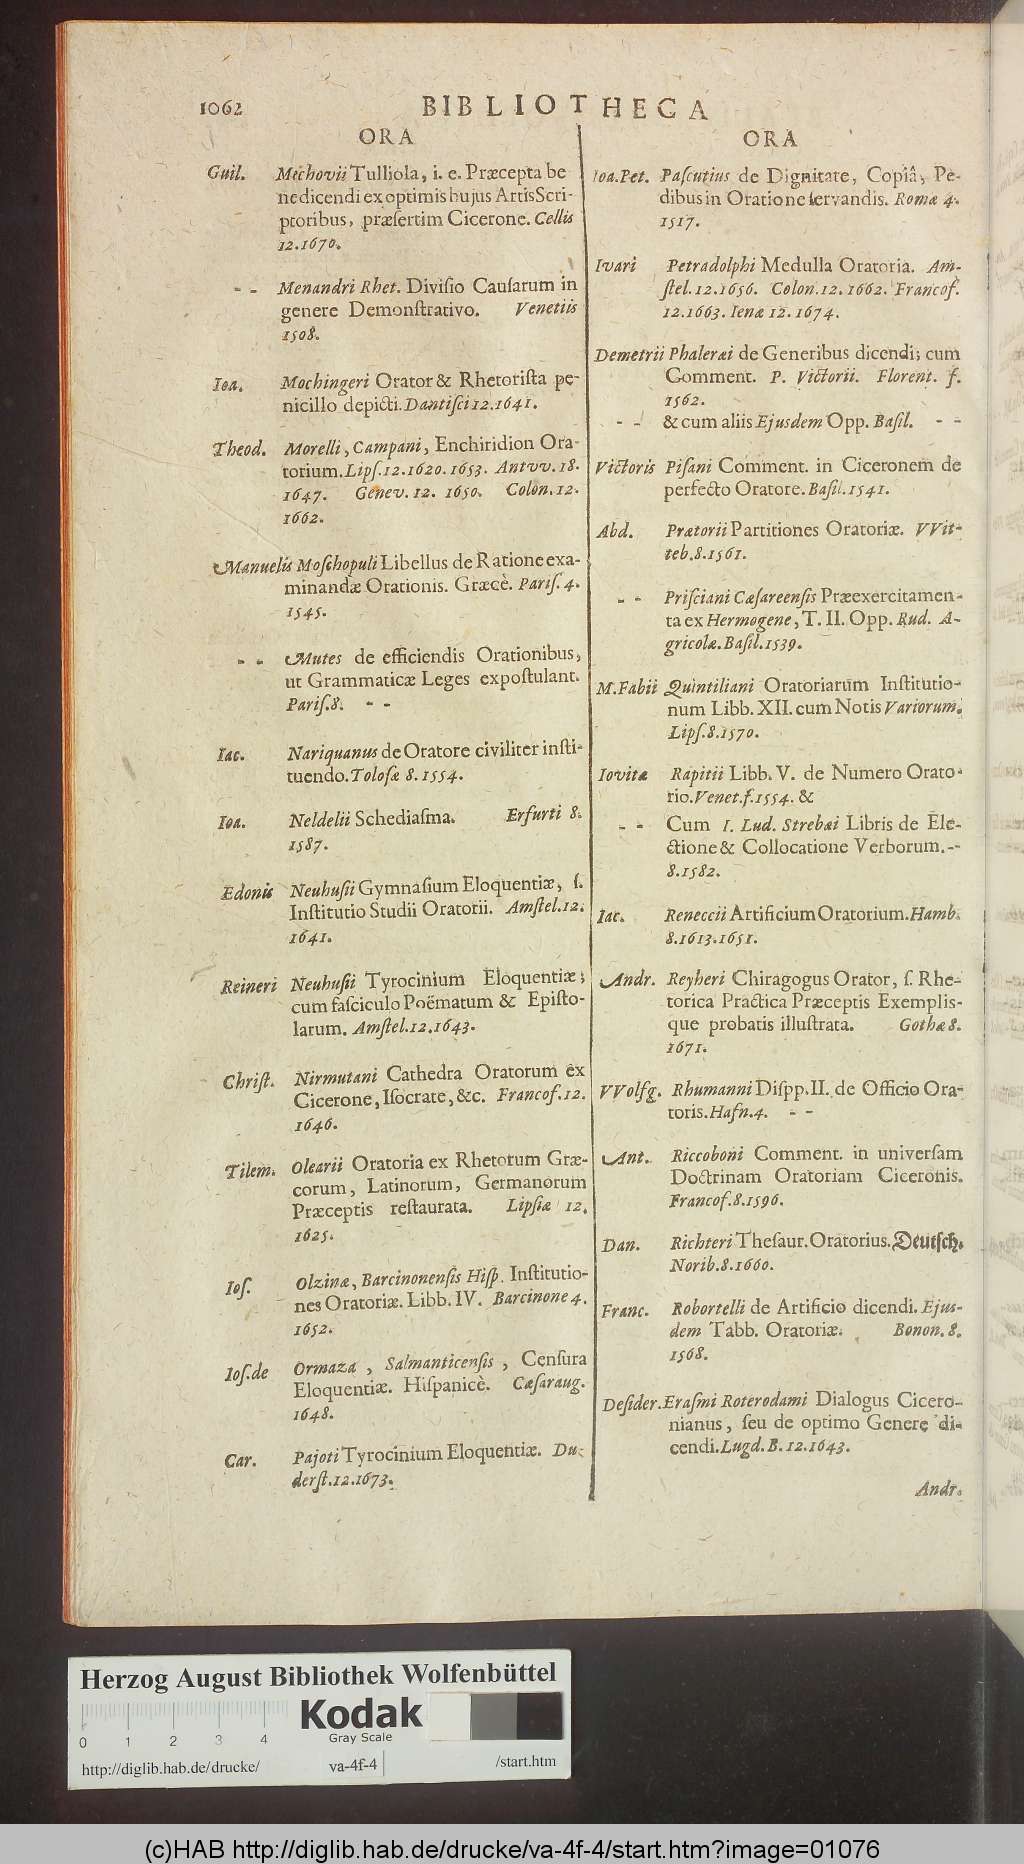 1062 BIBLIOTHECA
ORA
Guil. Mechovii Tulliola, i. e. Præcepta be
nedicendi ex optimis hujus Artis Scri-
ptoribus, præsertim Cicerone. Cellis
12. 1670.
- - Menandri Rhet. Divisio Causarum in
genere Demonstrativo. Venetiis
1508.
Ioa. Mochingeri Orator & Rhetorista pe-
nicillo depicti. Dantisci 12. 1641.
Theod. Morelli, Campani, Enchiridion Ora-
torium. Lips. 12. 1620. 1653. Antvv. 18.
1647. Genev. 12. 1650. Colon. 12.
1662.
Manuelis Moschopuli Libellus de Ratione exa-
minandæ Orationis. Græcè. Paris. 4.
1545.
- - Mutes de efficiendis Orationibus,
ut Grammaticæ Leges expostulant.
Paris. 8. - -
Iac. Nariquanus de Oratore civiliter insti-
tuendo. Tolosæ 8. 1554.
Ioa. Neldelii Schediasma. Erfurti 8.
1587.
Edonis Neuhusii Gymnasium Eloquentiæ, s.
Institutio Studii Oratorii. Amstel. 12.
1641.
Reineri Neuhusii Tyrocinium Eloquentiæ;
cum fasciculo Poëmatum & Episto-
larum. Amstel. 12. 1643.
Christ. Nirmutani Cathedra Oratorum ex
Cicerone, Isocrate, &c. Francof. 12.
1646.
Tilem. Olearii Oratoria ex Rhetorum Græ-
corum, Latinorum, Germanorum
Præceptis restaurata. Lipsiæ 12.
1625.
Ios. Olzinæ, Barcinonensis Hisp. Institutio-
nes Oratoriæ. Libb. IV. Barcinone 4.
1652.
Ios. de Ormaza, Salmanticensis, Censura
Eloquentiæ. Hispanicè. Cæsaraug.
1648.
Car. Pajoti Tyrocinium Eloquentiæ. Du-
derst. 12. 1673.
ORA
Ioa. Pet. Pascutius de Dignitate, Copiâ, Pe-
dibus in Oratione servandis. Romæ 4.
1517.
Ivari Petradolphi Medulla Oratoria. Am-
stel. 12. 1656. Colon. 12. 1662. Francof.
12. 1663. Ienæ 12. 1674.
Demetrii Phalerai de Generibus dicendi; cum
Comment. P. Victorii. Florent. f.
1562.
- - & cum aliis Ejusdem Opp. Basil. - -
Victoris Pisani Comment. in Ciceronem de
perfecto Oratore. Basil. 1541.
Abd. Prætorii Partitiones Oratoriæ. VVit-
teb. 8. 1561.
- - Prisciani Cæsareensis Præexercitamen-
ta ex Hermogene, T. II. Opp. Rud. A-
gricolæ. Basil. 1539.
M. Fabii Quintiliani Oratoriarum Institutio-
num Libb. XII. cum Notis Variorum.
Lips. 8. 1570.
Iovitæ Rapitii Libb. V. de Numero Orato-
rio. Venet. f. 1554. &
- - Cum I. Lud. Strebæi Libris de Ele-
ctione & Collocatione Verborum. --
8. 1582.
Iac. Reneccii Artificium Oratorium. Hamb.
8. 1613. 1651.
Andr. Reyheri Chiragogus Orator, s. Rhe-
torica Practica Præceptis Exemplis-
que probatis illustrata. Gothæ 8.
1671.
VVolfg. Rhumanni Dispp. II. de Officio Ora-
toris. Hafn. 4. - -
Ant. Riccoboni Comment. in universam
Doctrinam Oratoriam Ciceronis.
Francof. 8. 1596.
Dan. Richteri Thesaur. Oratorius. Deutsch.
Norib. 8. 1660.
Franc. Robortelli de Artificio dicendi. Ejus-
dem Tabb. Oratoriæ. Bonon. 8.
1568.
Desider. Erasmi Roterodami Dialogus Cicero-
nianus, seu de optimo Genere di-
cendi. Lugd. B. 12. 1643.
Andr.
Herzog August Bibliothek Wolfenbüttel
Kodak
Gray Scale
0 1 2 3 4
http://diglib.hab.de/drucke/ va-4f-4 /start.htm
(c)HAB http://diglib.hab.de/drucke/va-4f-4/start.htm?image=01076